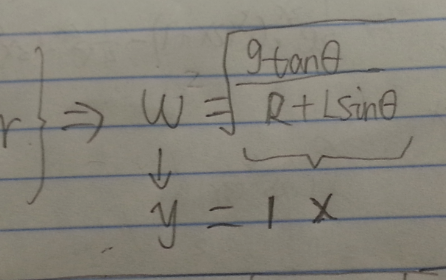 r} ⇒ w = √(g tanθ / R + L sinθ)
↓
y = 1 x